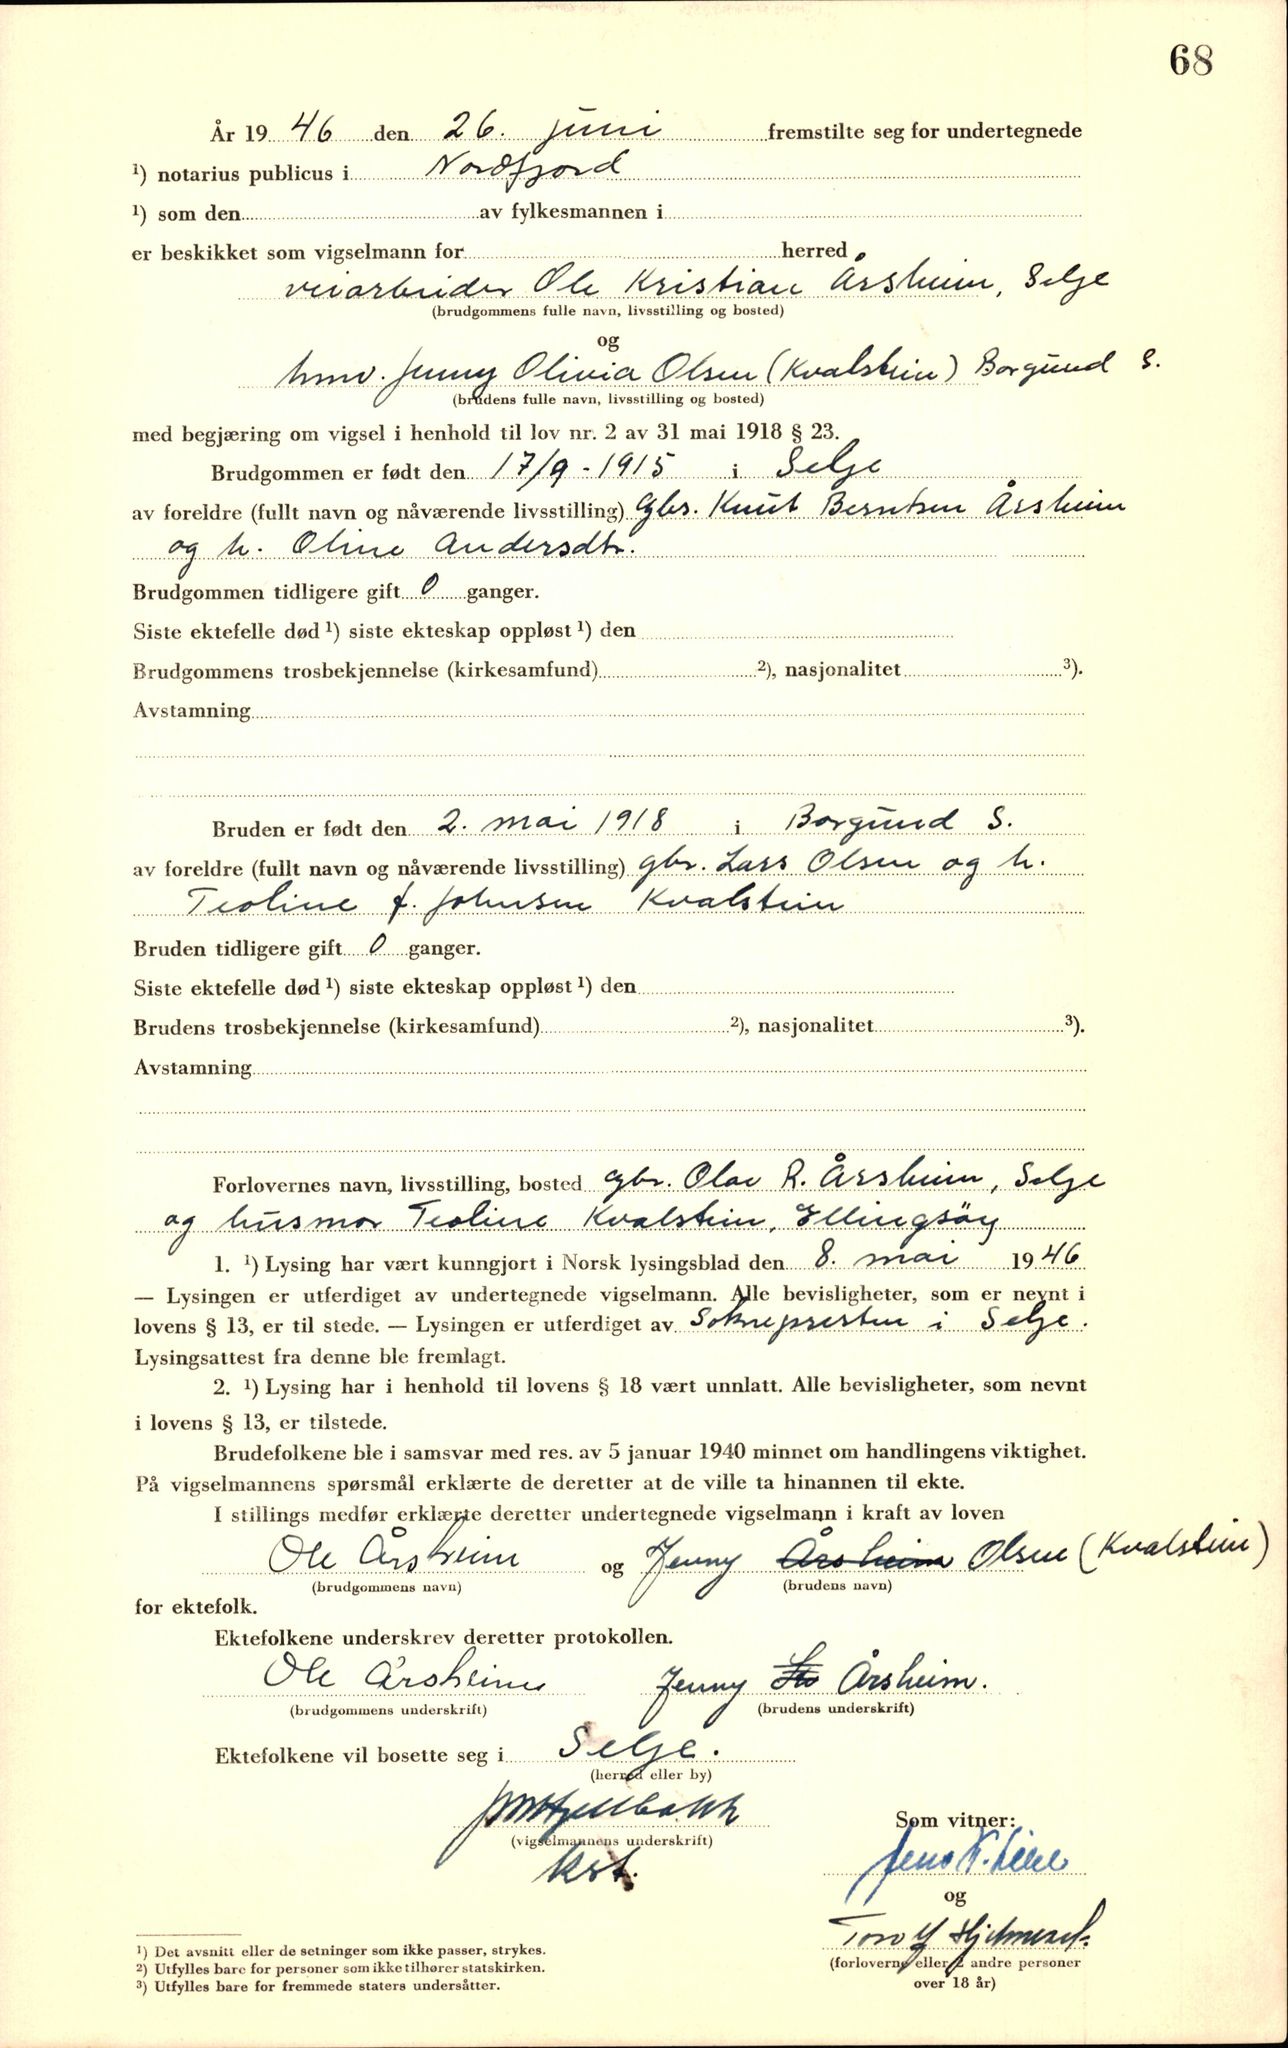 68
År 19 46 den 26. juni fremstilte seg for undertegnede
¹) notarius publicus i Nordfjord
¹) som den av fylkesmannen i
er beskikket som vigselmann for herred
veiarbeider Ole Kristian Årsheim, Selje
(brudgommens fulle navn, livsstilling og bosted)
og
hmv. Jenny Olivia Olsen (Kvalstein) Borgund S.
(brudens fulle navn, livsstilling og bosted)
med begjæring om vigsel i henhold til lov nr. 2 av 31 mai 1918 § 23.
Brudgommen er født den 17/9 - 1915 i Selje
av foreldre (fullt navn og nåværende livsstilling) gbr. Knut Berntsen Årsheim
og h. Oline Andersdtr.
Brudgommen tidligere gift 0 ganger.
Siste ektefelle død ¹) siste ekteskap oppløst ¹) den
Brudgommens trosbekjennelse (kirkesamfund) ²), nasjonalitet ³).
Avstamning
Bruden er født den 2. mai 1918 i Borgund S.
av foreldre (fullt navn og nåværende livsstilling) gbr. Lars Olsen og h.
Teoline f. Johnsen Kvalstein
Bruden tidligere gift 0 ganger.
Siste ektefelle død ¹) siste ekteskap oppløst ¹) den
Brudens trosbekjennelse (kirkesamfund) ²), nasjonalitet ³).
Avstamning
Forlovernes navn, livsstilling, bosted gbr. Olav R. Årsheim, Selje
og husmor Teoline Kvalstein, Ellingsöy
1. ¹) Lysing har vært kunngjort i Norsk lysingsblad den 8. mai 19 46
— Lysingen er utferdiget av undertegnede vigselmann. Alle bevisligheter, som er nevnt i
lovens § 13, er til stede. — Lysingen er utferdiget av Soknepresten i Selje.
Lysingsattest fra denne ble fremlagt.
2. ¹) Lysing har i henhold til lovens § 18 vært unnlatt. Alle bevisligheter, som nevnt
i lovens § 13, er tilstede.
Brudefolkene ble i samsvar med res. av 5 januar 1940 minnet om handlingens viktighet.
På vigselmannens spørsmål erklærte de deretter at de ville ta hinannen til ekte.
I stillings medfør erklærte deretter undertegnede vigselmann i kraft av loven
Ole Årsheim og Jenny Årsheim Olsen (Kvalstein)
(brudgommens navn) (brudens navn)
for ektefolk.
Ektefolkene underskrev deretter protokollen.
Ole Årsheim Jenny Årsheim.
(brudgommens underskrift) (brudens underskrift)
Ektefolkene vil bosette seg i Selje.
(herred eller by)
(vigselmannens underskrift)
kst.
Som vitner:
Jens
og
(forloverne eller 2 andre personer
over 18 år)
¹) Det avsnitt eller de setninger som ikke passer, strykes.
²) Utfylles bare for personer som ikke tilhører statskirken.
³) Utfylles bare for fremmede staters undersåtter.